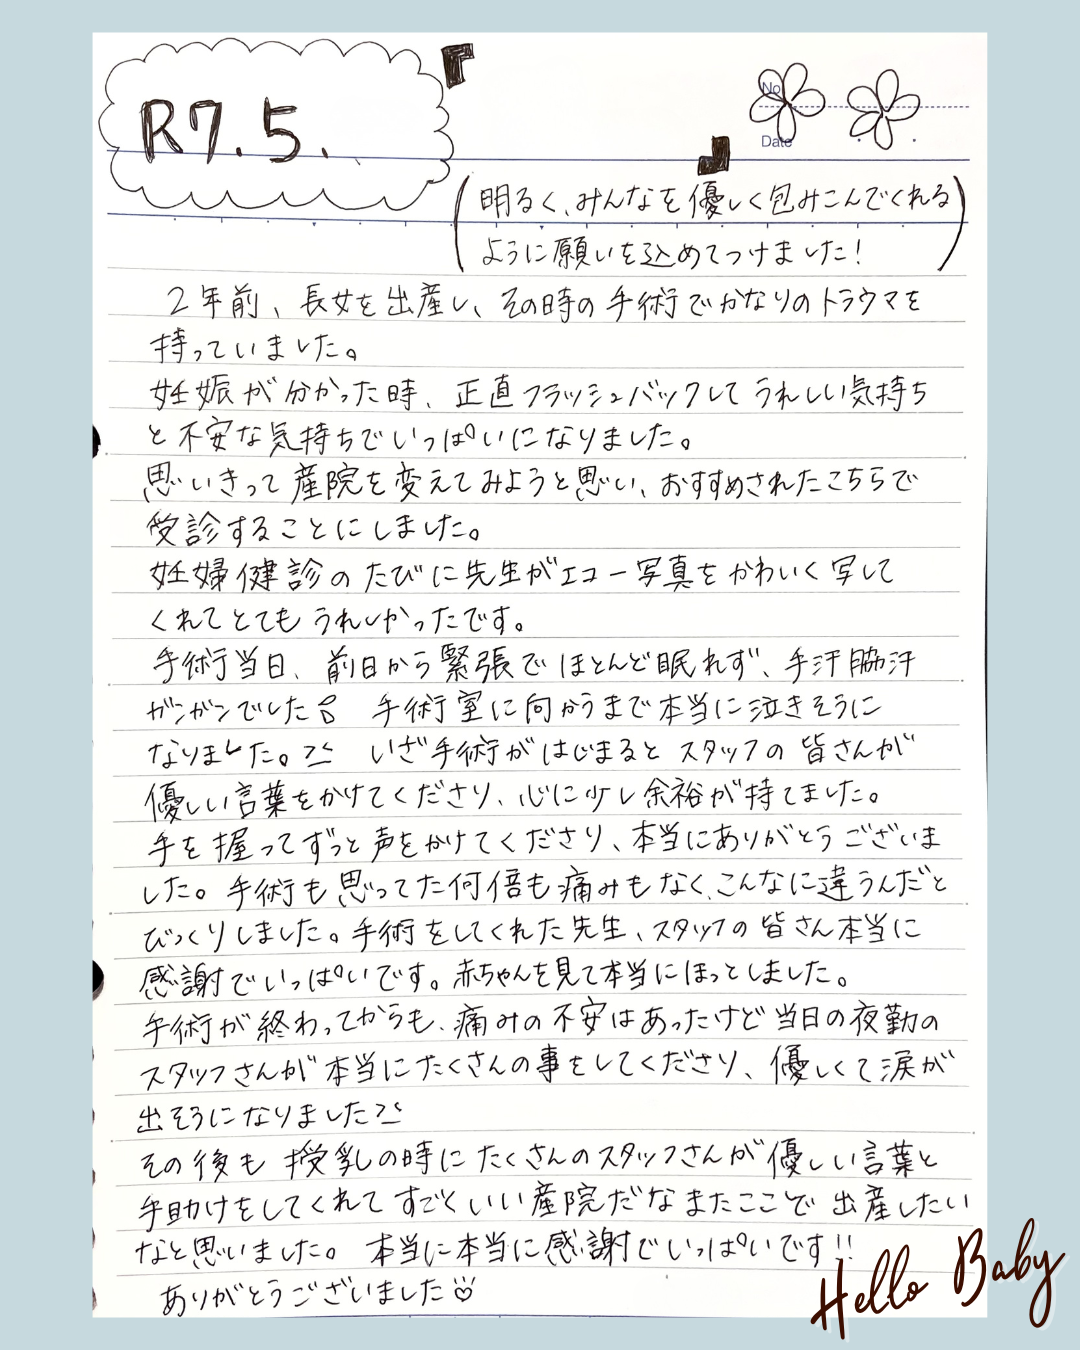 R7.5.
『
No.
Date
』
(明るく、みんなを優しく包みこんでくれる
ように願いを込めてつけました!)
2年前、長女を出産し、その時の手術でかなりのトラウマを
持っていました。
妊娠が分かった時、正直フラッシュバックしてうれしい気持ち
と不安な気持ちでいっぱいになりました。
思いきって産院を変えてみようと思い、おすすめされたこちらで
受診することにしました。
妊婦健診のたびに先生がエコー写真をかわいく写して
くれてとてもうれしかったです。
手術当日、前日から緊張でほとんど眠れず、手汗脇汗
ガンガンでした 手術室に向かうまで本当に泣きそうに
なりました。 いざ手術がはじまるとスタッフの皆さんが
優しい言葉をかけてくださり、心に少し余裕が持てました。
手を握ってずっと声をかけてくださり、本当にありがとうございま
した。手術も思ってた何倍も痛みもなく、こんなに違うんだと
びっくりしました。手術をしてくれた先生、スタッフの皆さん本当に
感謝でいっぱいです。赤ちゃんを見て本当にほっとしました。
手術が終わってからも、痛みの不安はあったけど当日の夜勤の
スタッフさんが本当にたくさんの事をしてくださり、優しくて涙が
出そうになりました
その後も授乳の時にたくさんのスタッフさんが優しい言葉と
手助けをしてくれてすごくいい産院だなまたここで出産したい
なと思いました。本当に本当に感謝でいっぱいです!!
ありがとうございました♡
Hello Baby